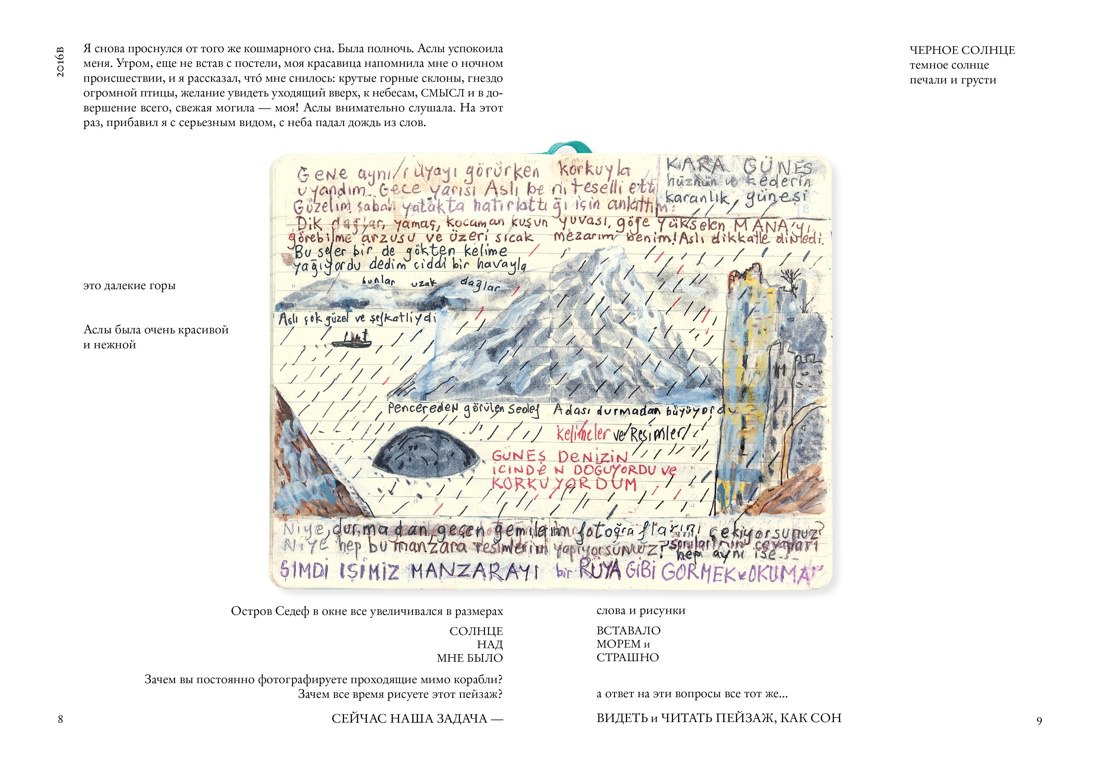 2016в
Я снова проснулся от того же кошмарного сна. Была полночь. Аслы успокоила
меня. Утром, еще не встав с постели, моя красавица напомнила мне о ночном
происшествии, и я рассказал, чтó мне снилось: крутые горные склоны, гнездо
огромной птицы, желание увидеть уходящий вверх, к небесам, СМЫСЛ и в до-
вершение всего, свежая могила — моя! Аслы внимательно слушала. На этот
раз, прибавил я с серьезным видом, с неба падал дождь из слов.
ЧЕРНОЕ СОЛНЦЕ
темное солнце
печали и грусти
Gene aynı rüyayı görürken korkuyla
uyandım. Gece yarısı Aslı beni teselli etti
Güzelim sabah yatakta hatırlattığı için anlattım:
KARA GÜNEŞ
hüznün ve kederin
karanlık, güneşi
Dik dağlar, yamaç, kocaman kuşun yuvası, göğe yükselen MANA'yı
görebilme arzusu ve üzeri sıcak mezarım benim! Aslı dikkatle dinledi.
Bu sefer bir de gökten kelime
yağıyordu dedim ciddi bir havayla
bunlar uzak dağlar
Aslı çok güzel ve şefkatliydi
Pencereden görülen Sedef Adası durmadan büyüyordu
kelimeler ve Resimler
GÜNEŞ DENİZİN
İÇİNDEN DOĞUYORDU ve
KORKUYORDUM
Niye durmadan geçen gemilerin fotoğraflarını çekiyorsunuz?
Niye hep bu manzara resimlerini yapıyorsunuz? soruların cevapları
hep aynı ise...
ŞİMDİ İŞİMİZ MANZARAYI bir RÜYA GİBİ GÖRMEK ve OKUMAK
это далекие горы
Аслы была очень красивой
и нежной
Остров Седеф в окне все увеличивался в размерах
слова и рисунки
СОЛНЦЕ
НАД
МНЕ БЫЛО
ВСТАВАЛО
МОРЕМ и
СТРАШНО
Зачем вы постоянно фотографируете проходящие мимо корабли?
Зачем все время рисуете этот пейзаж?
а ответ на эти вопросы все тот же...
СЕЙЧАС НАША ЗАДАЧА —
ВИДЕТЬ и ЧИТАТЬ ПЕЙЗАЖ, КАК СОН
8
9